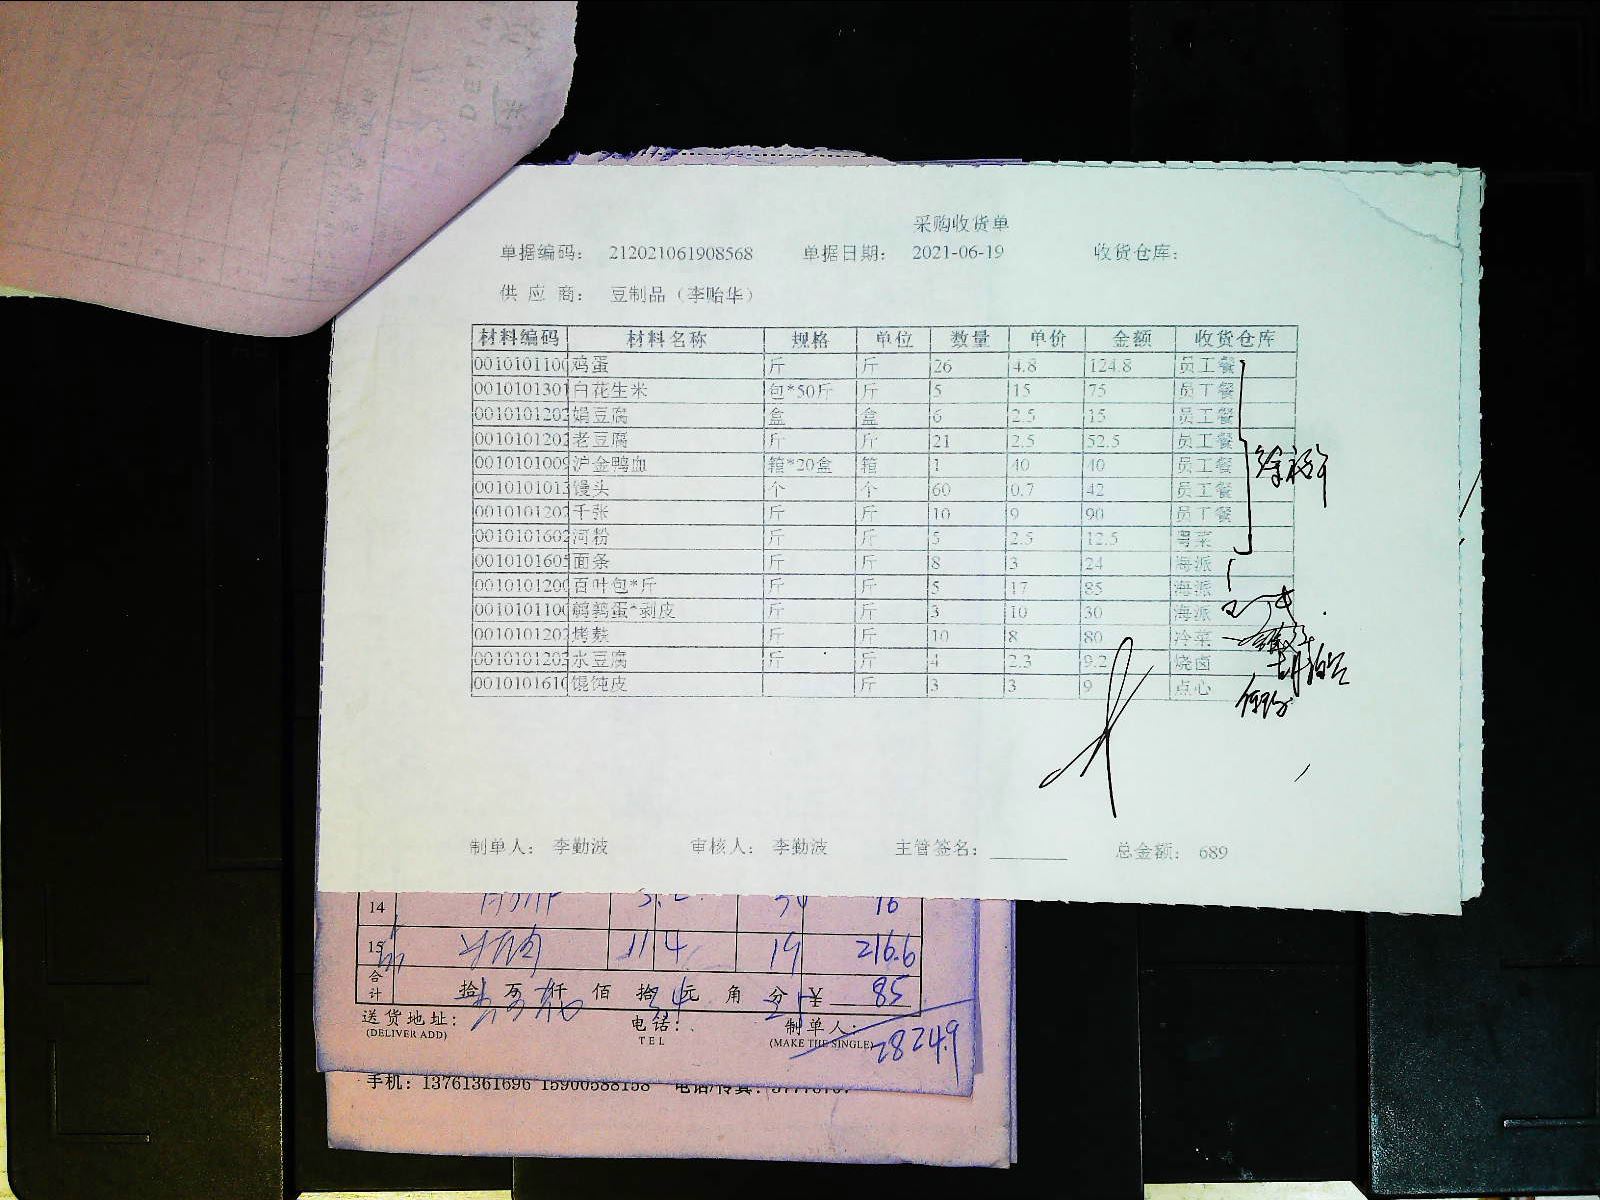 采购收货单
单据编码: 212021061908568 单据日期: 2021-06-19 收货仓库:
供 应 商: 豆制品（李贻华）
材料编码 材料名称 规格 单位 数量 单价 金额 收货仓库
0010101100 鸡蛋 斤 斤 26 4.8 124.8 员工餐
0010101301 白花生米 包*50斤 斤 5 15 75 员工餐
0010101202 娟豆腐 盒 盒 6 2.5 15 员工餐
0010101202 老豆腐 斤 斤 21 2.5 52.5 员工餐
0010101009 沪金鸭血 箱*20盒 箱 1 40 40 员工餐
0010101013 馒头 个 个 60 0.7 42 员工餐
0010101202 千张 斤 斤 10 9 90 员工餐
0010101602 河粉 斤 斤 5 2.5 12.5 粤菜
0010101605 面条 斤 斤 8 3 24 海派
0010101200 百叶包*斤 斤 斤 5 17 85 海派
0010101100 鹌鹑蛋*剥皮 斤 斤 3 10 30 海派
0010101202 烤麸 斤 斤 10 8 80 冷菜
0010101202 水豆腐 斤 斤 4 2.3 9.2 烧卤
0010101610 馄饨皮 斤 3 3 9 点心
制单人: 李勤波 审核人: 李勤波 主管签名: 总金额: 689
14 16
15 11.4 19 216.6
合计 拾 万 仟 佰 拾 元 角 分 85
送货地址: 电话: 制单人:
(DELIVER ADD) TEL (MAKE THE SINGLE)
2824.9
手机: 13761361696 15900588158 电话/传真: